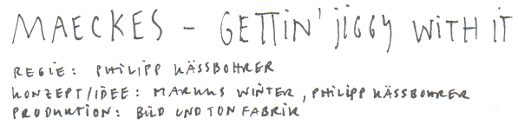 MAECKES - GETTIN' jiGGY WiTH iT
REGIE: PHILIPP KÄSSBOHRER
KONZEPT/IDEE: MARKUS WINTER, PHILIPP KÄSSBOHRER
PRODUKTION: BILD UND TON FABRIK